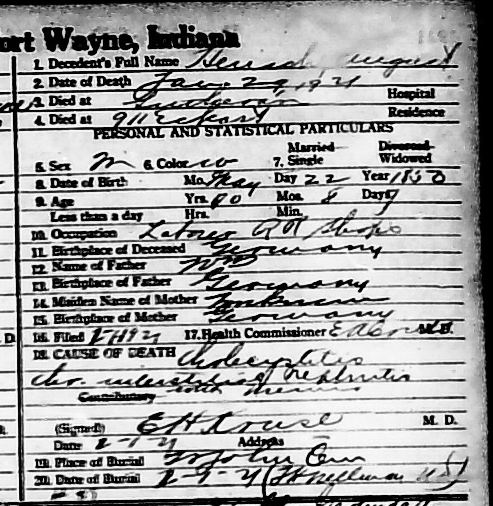 ort Wayne, Indiana
1. Decedent's Full Name August
2. Date of Death Jan. 29, 1931
3. Died at Lutheran Hospital
4. Died at 911 Eckart Residence
PERSONAL AND STATISTICAL PARTICULARS
Married Divorced
5. Sex M 6. Color W 7. Single Widowed
8. Date of Birth Mo. May Day 22 Year 1850
9. Age Yrs. 80 Mos. 8 Days 7
Less than a day Hrs. Min.
10. Occupation Laborer RR Shops
11. Birthplace of Deceased Germany
12. Name of Father
13. Birthplace of Father Germany
14. Maiden Name of Mother Unknown
15. Birthplace of Mother Germany
16. Filed 17. Health Commissioner M. D.
18. CAUSE OF DEATH Cholecystitis
chr. interstitial Nephritis
Contributory with uremia
(Signed) E H Kruse M. D.
Date 2-1-31 Address
19. Place of Burial St John Cem
20. Date of Burial